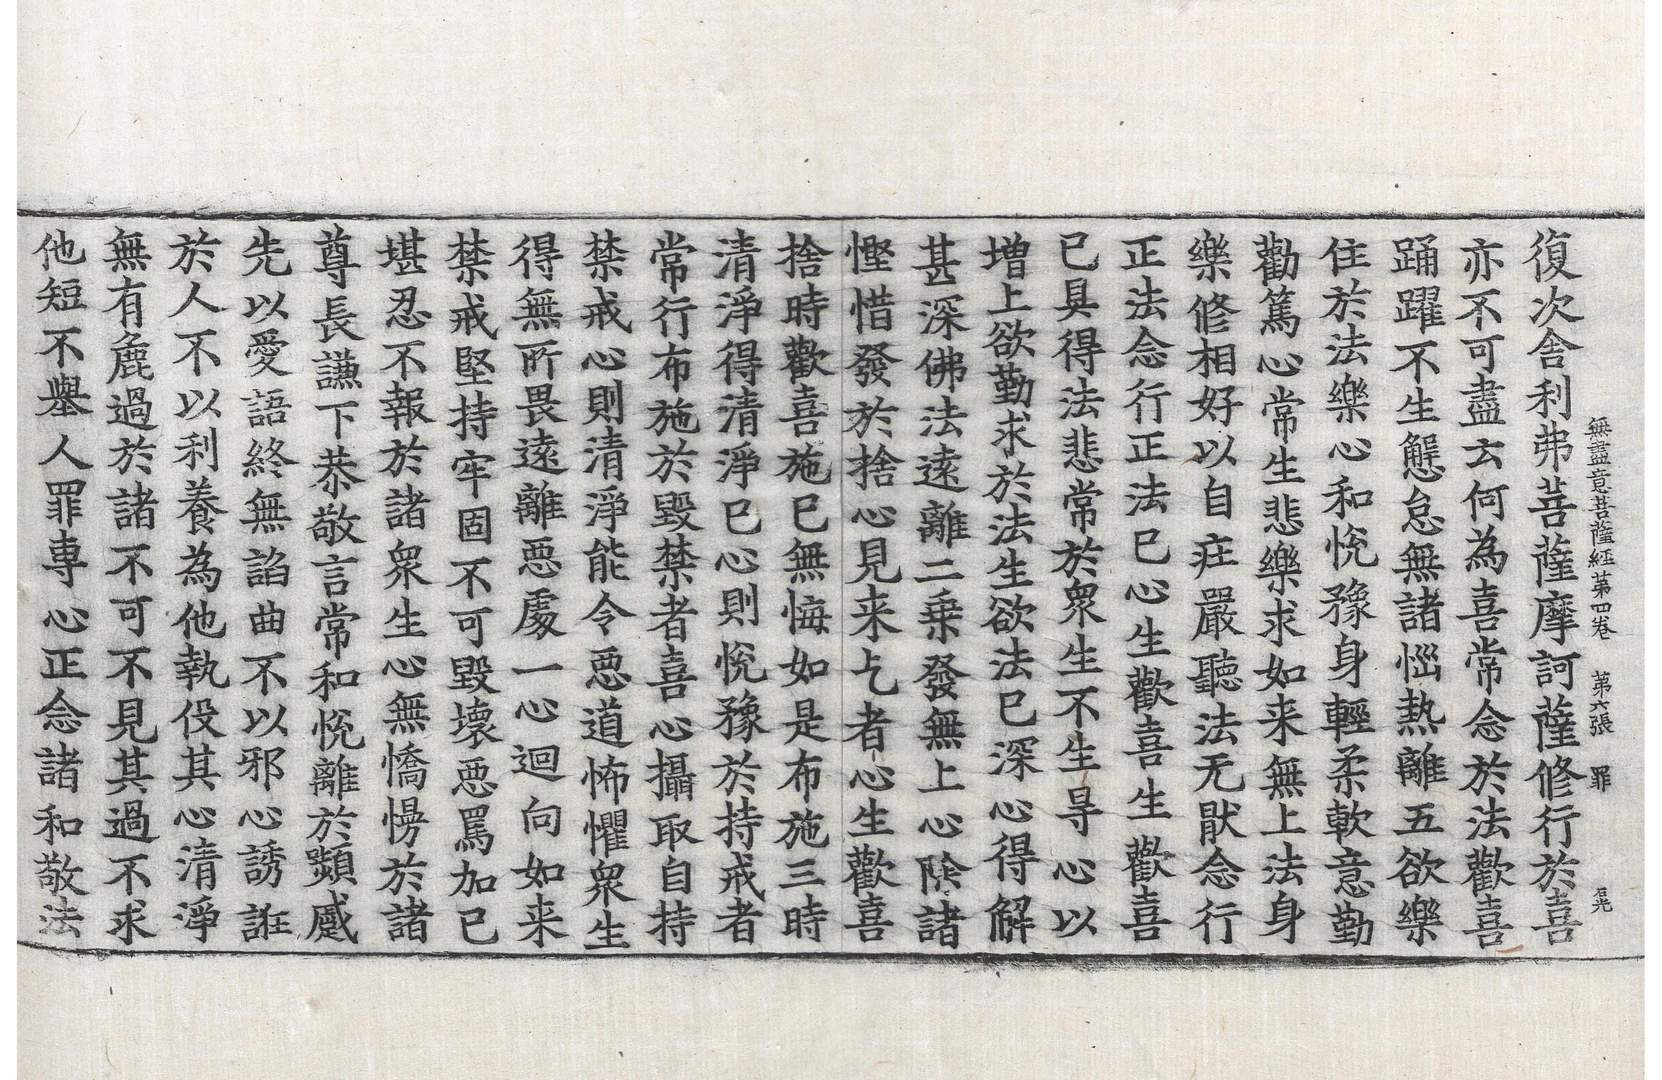 無盡意菩薩經第四卷　第六張　罪　石光
復次舍利弗菩薩摩訶薩修行於喜
亦不可盡云何為喜常念於法歡喜
踊躍不生懈怠無諸惱熱離五欲樂
住於法樂心和悅豫身輕柔軟意勤
勸篤心常生悲樂求如来無上法身
樂修相好以自庄嚴聽法无猒念行
正法念行正法已心生歡喜生歡喜
已具得法悲常於衆生不生㝵心以
增上欲勤求於法生欲法已深心得解
甚深佛法遠離二乗發無上心除諸
慳惜發於捨心見来乞者心生歡喜
捨時歡喜施已無悔如是布施三時
清淨得清淨已心則悅豫於持戒者
常行布施於毀禁者喜心攝取自持
禁戒心則清淨能令惡道怖懼衆生
得無所畏遠離惡處一心迴向如来
禁戒堅持牢固不可毀壞惡罵加已
堪忍不報於諸衆生心無憍慢於諸
尊長謙下恭敬言常和悅離於顰蹙
先以愛語終無諂曲不以邪心誘誑
於人不以利養為他執役其心清淨
無有麁過於諸不可不見其過不求
他短不舉人罪專心正念諸和敬法